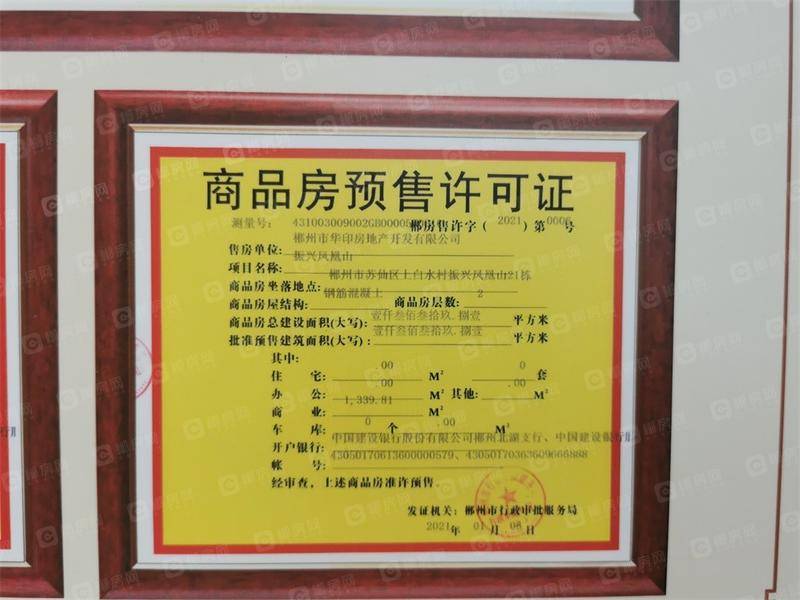 商品房预售许可证
测量号: 431003009002GB00005 郴房售许字( 2021 )第 0006 号
售房单位: 郴州市华印房地产开发有限公司
项目名称: 振兴凤凰山
商品房坐落地点: 郴州市苏仙区上白水村振兴凤凰山21栋
商品房屋结构: 钢筋混凝土 商品房层数: 2
商品房总建设面积(大写): 壹仟叁佰叁拾玖.捌壹 平方米
批准预售建筑面积(大写): 壹仟叁佰叁拾玖.捌壹 平方米
其中:
住 宅: .00 M² 0 套
办 公: .00 M² 其他: .00 M²
商 业: 1,339.81 M²
车 库: 0 个 .00 M²
开户银行: 中国建设银行股份有限公司郴州北湖支行、中国建设银行
帐 号: 43050170613600000579、43050170363609666888
经审查,上述商品房准许预售。
发证机关: 郴州市行政审批服务局
2021 年 01 月 08 日